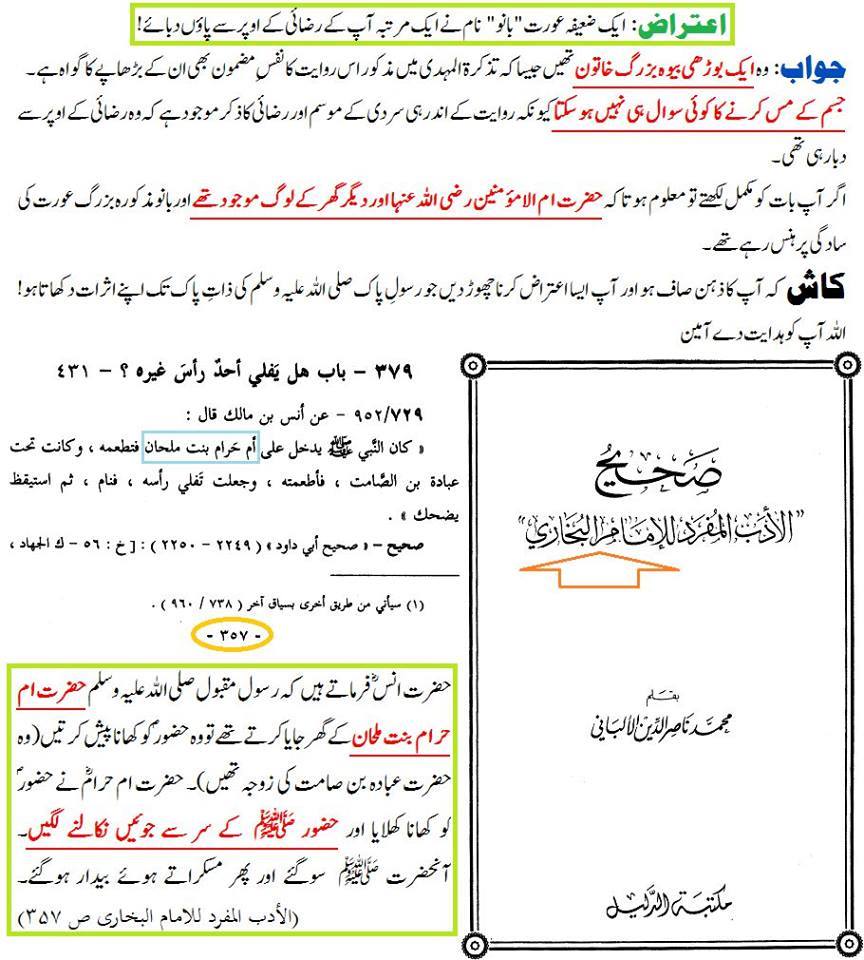 اعتراض: ایک ضعیفہ عورت "بانو" نام نے ایک مرتبہ آپ کے رضائی کے اوپر سے پاؤں دبائے!
جواب: وہ ایک بوڑھی بیوہ بزرگ خاتون تھیں جیسا کہ تذکرۃ المہدی میں مذکور اس روایت کا نفسِ مضمون بھی ان کے بڑھاپے کا گواہ ہے۔
جسم کے مس کرنے کا کوئی سوال ہی نہیں ہو سکتا کیونکہ روایت کے اندر ہی سردی کے موسم اور رضائی کا ذکر موجود ہے کہ وہ رضائی کے اوپر سے
دبا رہی تھی۔
اگر آپ بات کو مکمل لکھتے تو معلوم ہوتا کہ حضرت ام الامؤمنین رضی اللہ عنہا اور دیگر گھر کے لوگ موجود تھے اور بانو مذکورہ بزرگ عورت کی
سادگی پر ہنس رہے تھے۔
کاش کہ آپ کا ذہن صاف ہو اور آپ ایسا اعتراض کرنا چھوڑ دیں جو رسولِ پاک صلی اللہ علیہ وسلم کی ذاتِ پاک تک اپنے اثرات دکھاتا ہو!
اللہ آپ کو ہدایت دے آمین
٣٧٩ - باب هل يَفلي أحدٌ رأسَ غيره ؟ - ٤٣١
٩٥٢/٧٢٩ - عن أنس بن مالك قال :
« كان النَّبي ﷺ يدخل على أم حَرام بنت ملحان فتطعمه ، وكانت تحت
عبادة بن الصَّامت ، فأطعمته ، وجعلت تَفلي رأسه ، فنام ، ثم استيقظ
يضحك » .
صحيح - « صحيح أبي داود » ( ٢٢٤٩ - ٢٢٥٠ ) : [ خ : ٥٦ - ك الجهاد ،
(١) سيأتي من طريق أخرى بسياق آخر ( ٧٣٨ / ٩٦٠ ) .
- ٣٥٧ -
حضرت انسؓ فرماتے ہیں کہ رسول مقبول صلی اللہ علیہ وسلم حضرت ام
حرام بنت ملحان کے گھر جایا کرتے تھے تو وہ حضورؐ کو کھانا پیش کرتیں (وہ
حضرت عبادہ بن صامت کی زوجہ تھیں)۔ حضرت ام حرامؓ نے حضورؐ
کو کھانا کھلایا اور حضور ﷺ کے سر سے جوئیں نکالنے لگیں۔
آنحضرت ﷺ سو گئے اور پھر مسکراتے ہوئے بیدار ہو گئے۔
(الأدب المفرد للامام البخاری ص ۳۵۷)
صَحِيحُ
"الأدَب المُفرَد للإمَام البُخَاري"
بقلم
محمد ناصر الدين الألباني
مكتبة الدليل